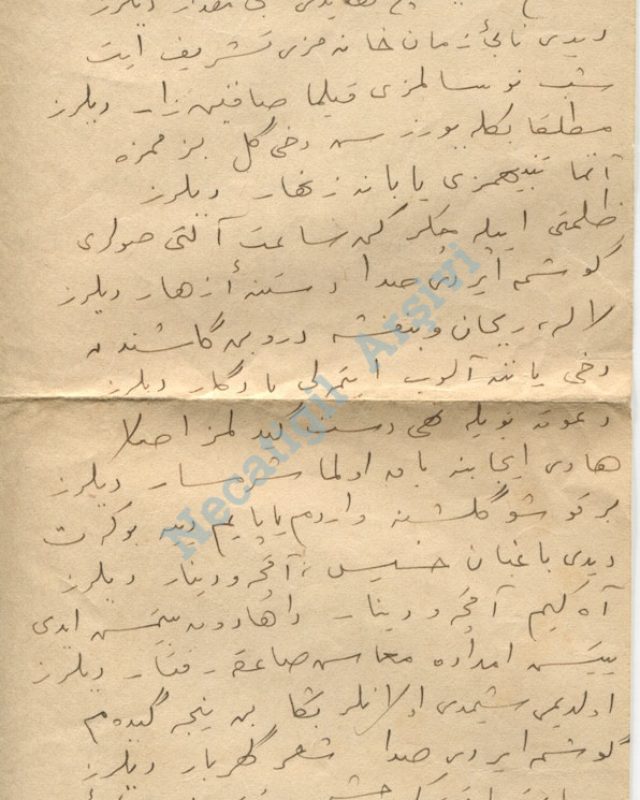 دیدی نابئ زمان خانه مزی تشریف ایت
شب نو سالمزی قیلما صاقین زار دیلرز
مطلقا بکله یورز سن دخی گل بزممزه
آتما تنبیهمزی یابانه زنهار دیلرز
ظلمتی ایله چکرکن ساعت آلتی صولری
گوشمه ایردی صدا دستۀ ازهار دیلرز
لاله، ریحان و بنفشه درو بن گلشندن
دخی یاننه آلوب ایتمه لی یادگار دیلرز
دعوته بویله تهی دست گیدلمز اصلا
هادی ایجابنه باق اولما شرمسار دیلرز
بر قوشو گلشنه واردم یاپایم دیه
دیدی باغبان خسیس، آقچه و دینار دیلرز
آه کیم آقچه و دینار داها دون بیتمش ایدی
یتیش امداده معاش صاعقه رفتار دیلرز
اولدیمی شیمدی اولانلر بکا بن ینجه گیده یم
گوشمه ایردی صدا شعر گهربار دیلرز
Necatigil Arşivi